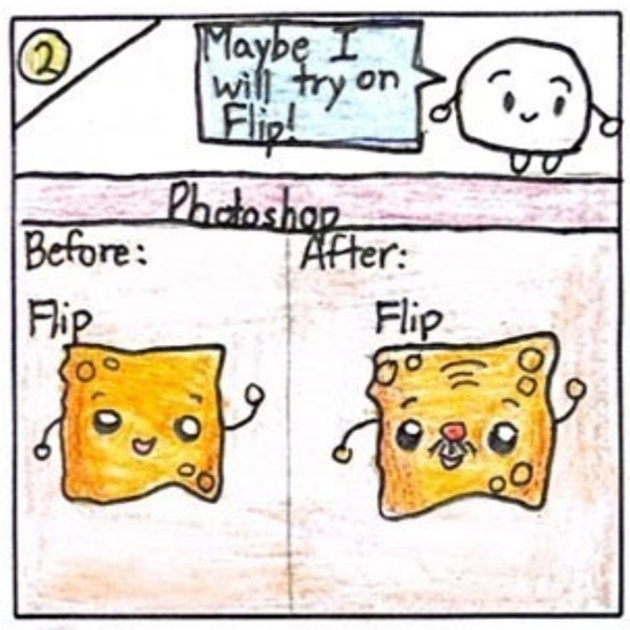 2
Maybe I
will try on
Flip!
Photoshop
Before:
After:
Flip
Flip